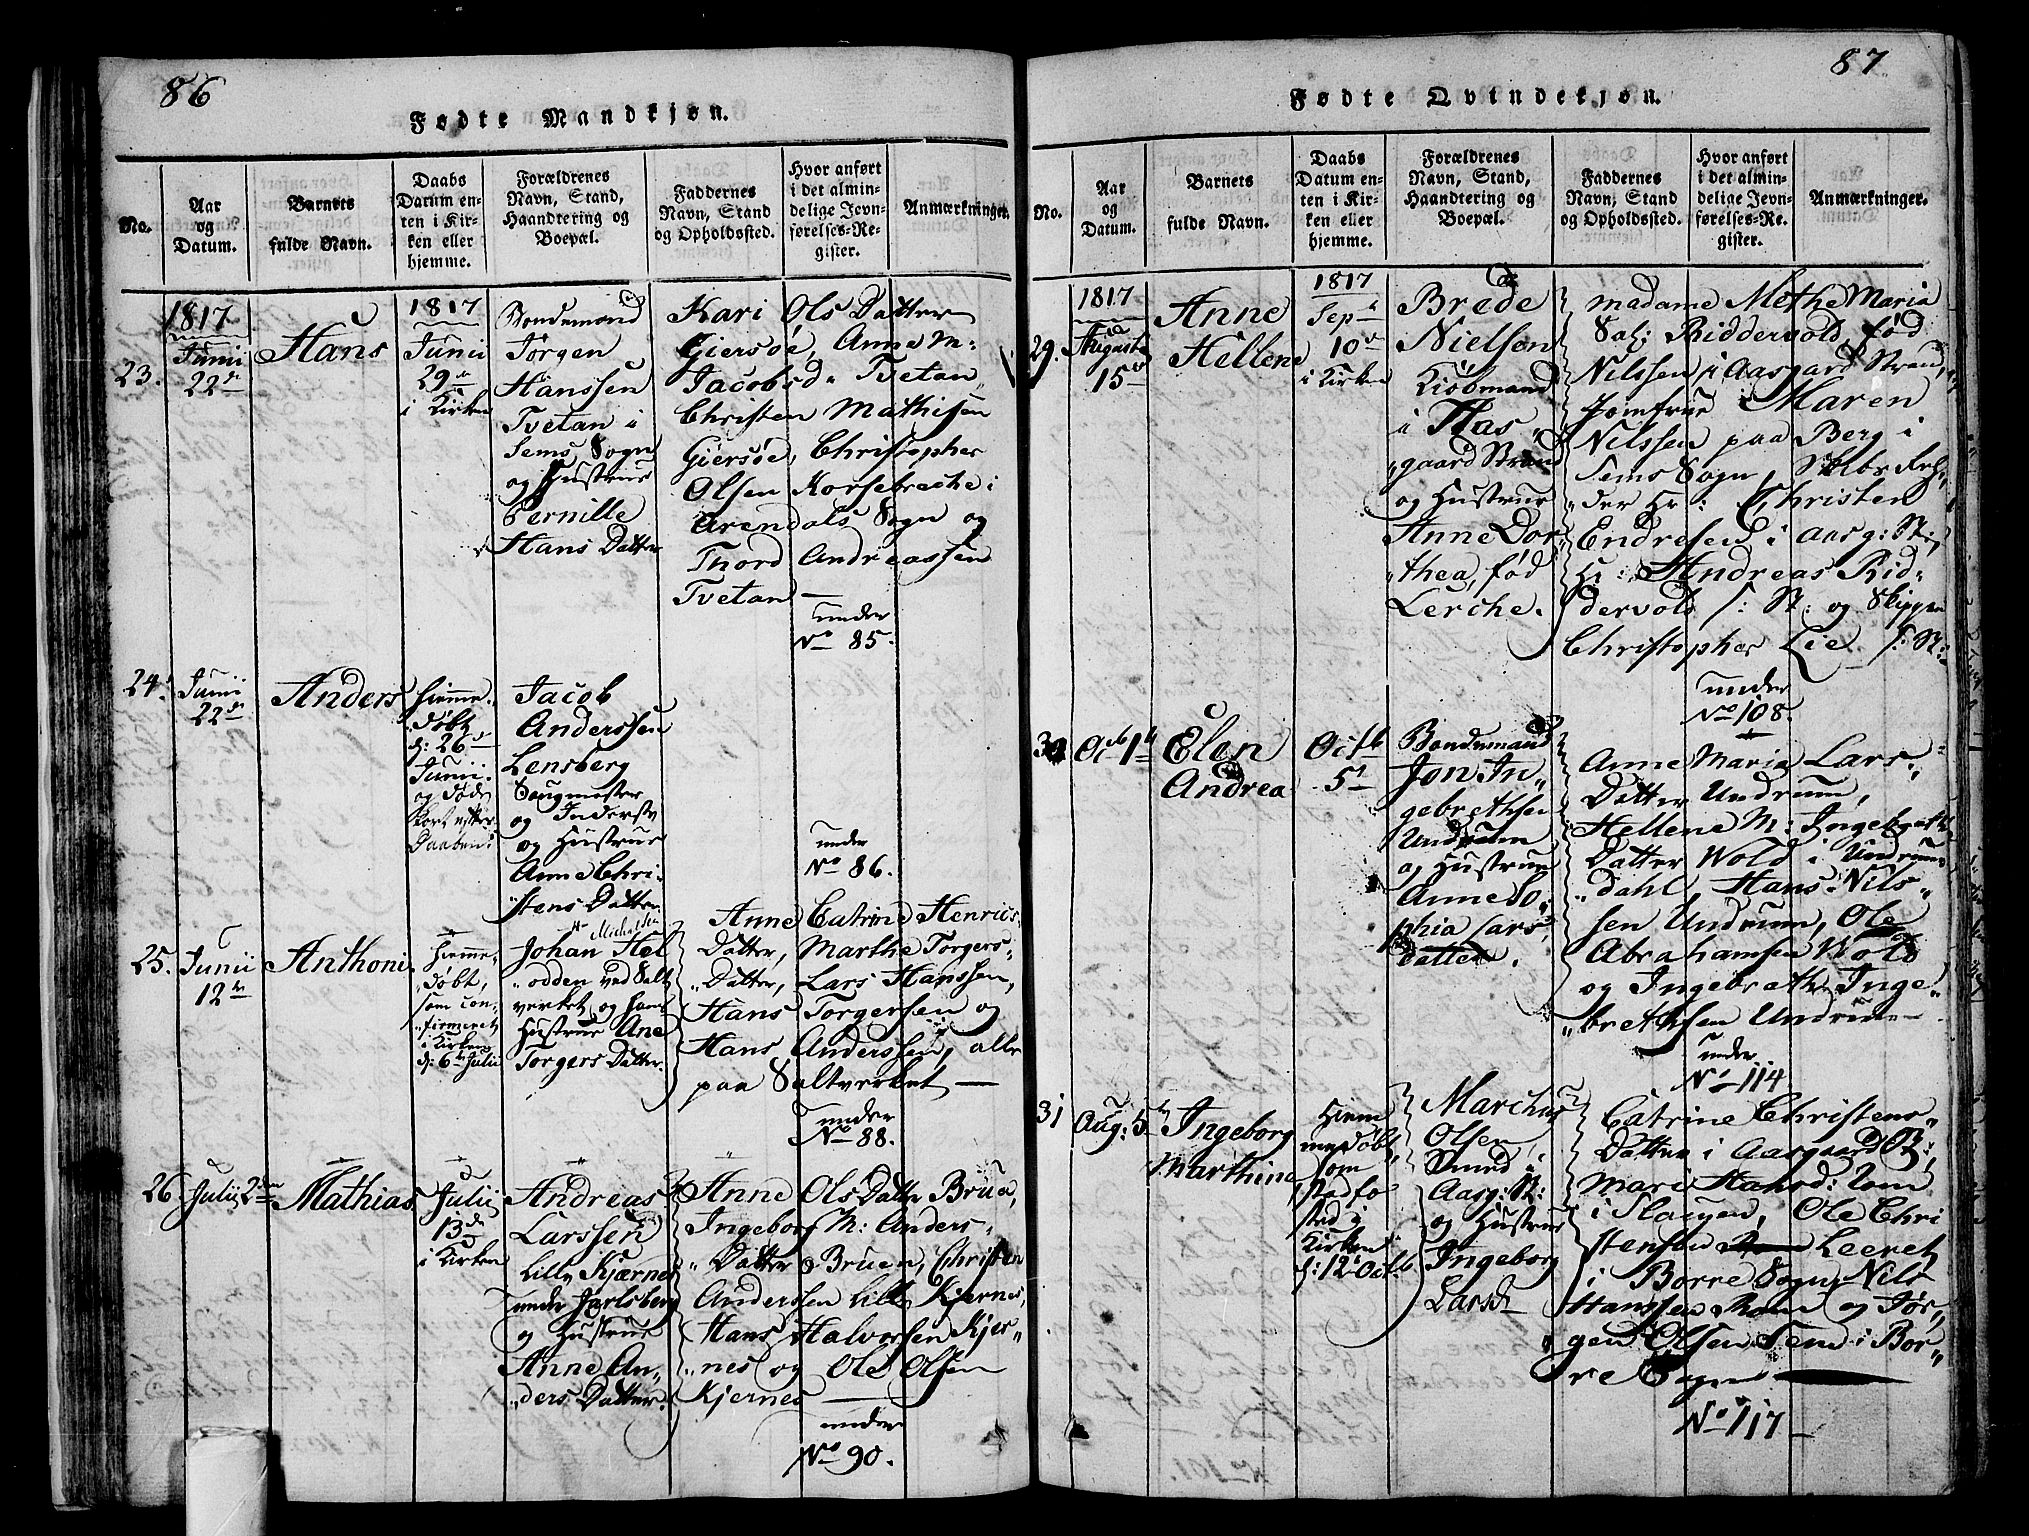 86
Fødte Mandkjøn.
No.
Aar
og
Datum.
Barnets
fulde Navn.
Daabs
Datum en-
ten i Kir-
ken eller
hjemme.
Forældrenes
Navn, Stand,
Haandtering og
Boepæl.
Faddernes
Navn, Stand
og Opholdssted.
Hvor anført
i det almin-
delige Jevn-
førelses-Re-
gister.
Anmærkninger.
23.
1817
Junii
22de
Hans
1817
Junii
29de
i Kirken
Bondemand
Jørgen
Hanssen
Tvetan i
Sems Sogn
og Hustrue
Pernille
Hans Datter
Kari Ols Datter
Giersøe, Anne M:
Jacobsd. Tvetan
Christen Mathisen
Giersøe, Christopher
Olsen Korsebreche i
Arendals Sogn og
Thord Andreassen
Tvetan
under
No 85.
24.
Junii
22de
Anders
hiemme-
døbt
d: 26de
Junii
og døde
kort efter
Daaben
Jacob
Anderssen
Lensberg
Saugmester
og Inderste
og Hustrue
Anne Chri-
stens Datter
under
No 86.
25.
Junii
12te
Anthoni
hiemme-
døbt,
som con-
firmeret
i Kirken
d: 6te Julii
Michelsen
Johan Hel-
odden ved Salt
verket og hans
Hustrue Ane
Torgers Datter.
Anne Catrine Henrics
Datter, Marthe Torgers-
Datter, Lars Hanssen,
Hans Torgersen og
Hans Anderssen, alle
paa Saltverket
under
No 88.
26
Julii 2den
Mathias
Julii
13de
i Kirken
Andreas
Larssen
Lille Kjærne
under Jarlsberg
og Hustrue
Anne An-
ders Datter.
Anne Ols Datter Brua,
Ingeborg M: Anders-
Datter Bruen, Christen
Anderssen Lille Kjernes,
Hans Halvorsen Kjer-
nes og Ole Olsen
Kjernes
under
No 90.
87
Fødte Qvindekjøn.
No.
Aar
og
Datum.
Barnets
fulde Navn.
Daabs
Datum en-
ten i Kir-
ken eller
hjemme.
Forældrenes
Navn, Stand,
Haandtering og
Boepæl.
Faddernes
Navn, Stand
og Opholdssted.
Hvor anført
i det almin-
delige Jevn-
førelses-Re-
gister.
Anmærkninger.
29.
1817
August
15de
Anne
Hellene
1817
Sept
10de
i Kirken
Brede
Nielsen
Kiøbmand
i Aas-
gaard Strand
og Hustrue
Anne Dor-
thea, fød
Lerche.
Madame Methe Maria
Sal: Riddervold, fød
Nilssen i Aasgaard Strand,
Jomfrue Maren
Nilssen paa Berg i
Sems Sogn,
der Hr: Christen
Endresen i Aasg: St:,
Hr: Andreas Rid-
dervold i: St: og Skipper
Christopher Lie i: St:
under
No 108.
30
Octb 1te
Elen
Andrea
Octb
5te
Bondemand
Jon In-
gebrethsen
Undrum
og Hustrue
Anne So-
phia Lars-
datter.
Anne Maria Lars-
Datter Undrum,
Hellene M: Ingebreths
Datter Wold i Undrum-
dahl, Hans Nils-
sen Undrum, Ole
Abrahamsen Wold
og Ingebreth Inge-
brethsen Undrum
under
No 114
31
Aug: 5te
Ingeborg
Marthine
Hiem-
medøbt,
som
stadfæ-
sted i
Kirken
d: 12te Octb
Marchus
Olsen
Smed i
Aasg: St:
og Hustrue
Ingeborg
Larsd
Catrine Christens
Datter i Aasgaard St:,
Mari Hansd: Rom
i Slangen, Ole Chri
stenson Leeret
i Borre Sogn, Nils
Hanssen Rom og Jør-
gen Olsen Sem i Bor-
re Sogn
No 117